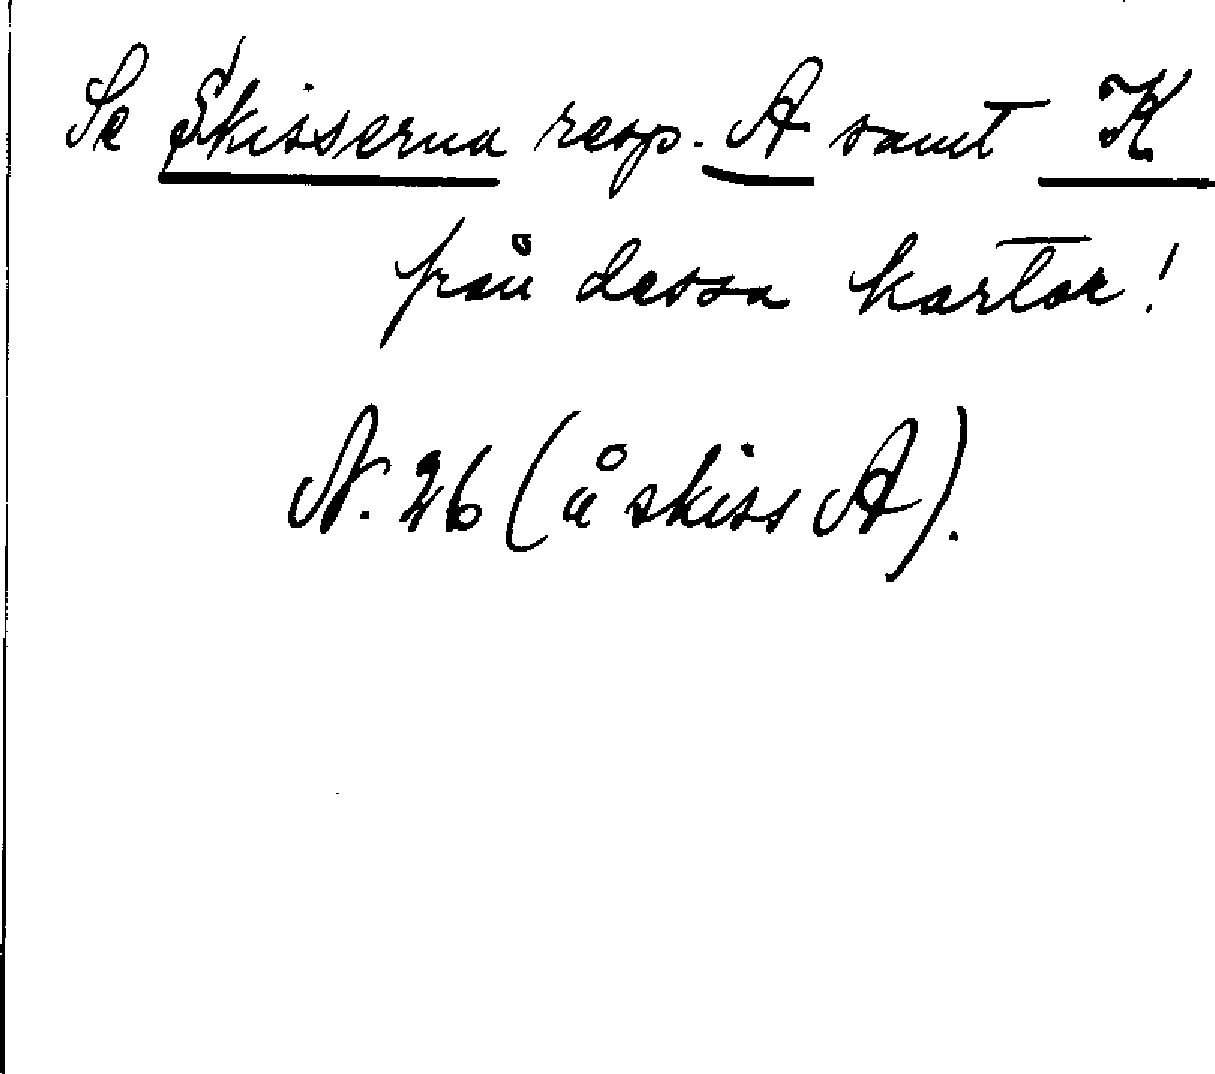 Se Skisserna resp. A samt K
från dessa kartor!
N. 26 (å skiss A).